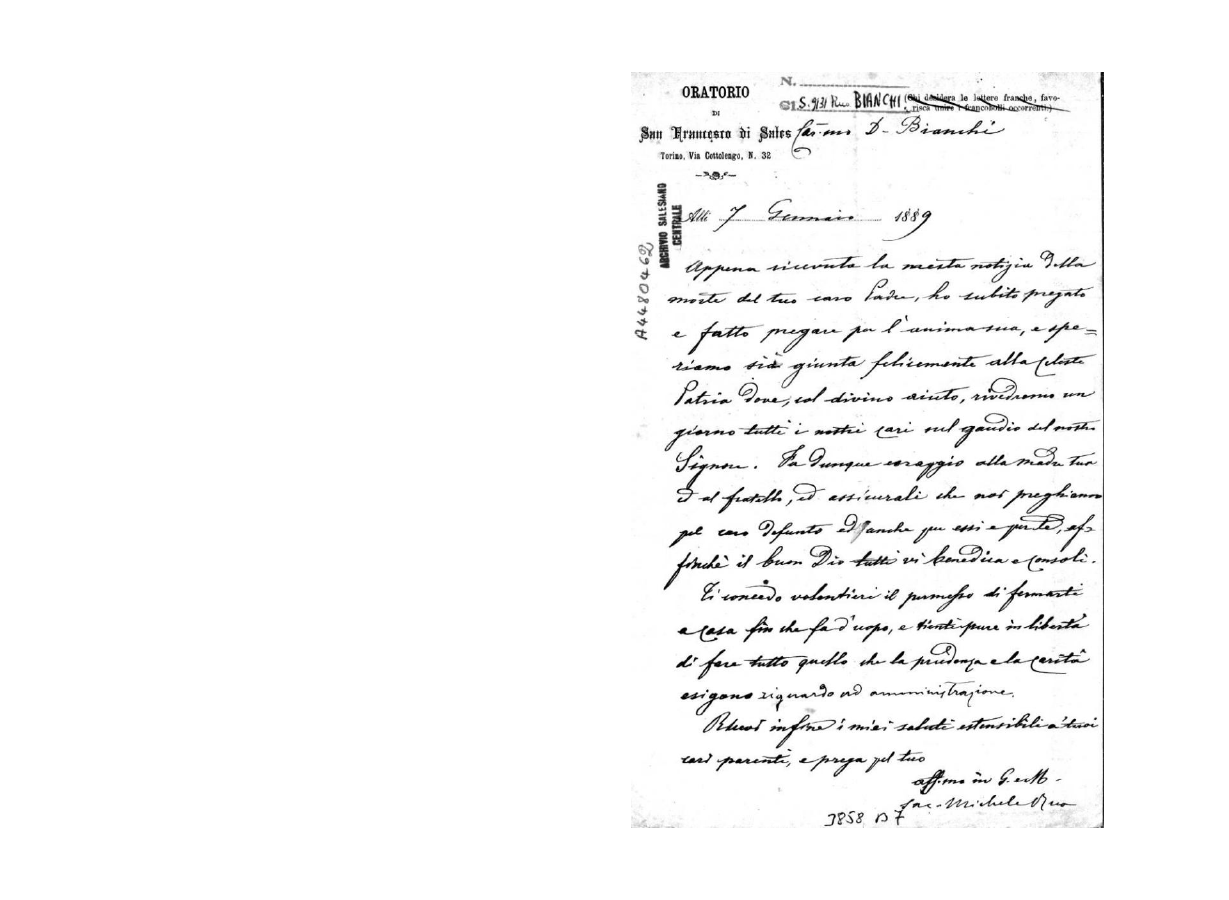 N.
ORATORIO
DI
San Francesco di Sales
Torino, Via Cottolengo, N. 32
Cl. S. 9131 Rua BIANCHI (Chi desidera le lettere franche, favo-
risca unire i francobolli occorrenti.)
Car.mo D. Bianchi
ARCHIVIO SALESIANO
CENTRALE
A4480462
Addì 7 Gennaio 1889
Appena ricevuta la mesta notizia della
morte del tuo caro Padre, ho subito pregato
e fatto pregare per l'anima sua, e spe=
riamo sia giunta felicemente alla celeste
Patria dove, col divino aiuto, rivedremo un
giorno tutti i nostri cari nel gaudio del nostro
Signore. Fa dunque coraggio alla madre tua
ed al fratello, ed assicurali che noi preghiamo
pel caro defunto ed anche per essi e per te, af-
finchè il buon Dio tutti vi benedica e consoli.
Ti concedo volentieri il permesso di fermarti
a casa fin che fa d'uopo, e tienti pure in libertà
di fare tutto quello che la prudenza e la carità
esigono riguardo ad amministrazione.
Ricevi infine i miei saluti estensibili a' tuoi
cari parenti, e prega pel tuo
aff.mo in G. e M.
Sac. Michele Rua
3858 B 7